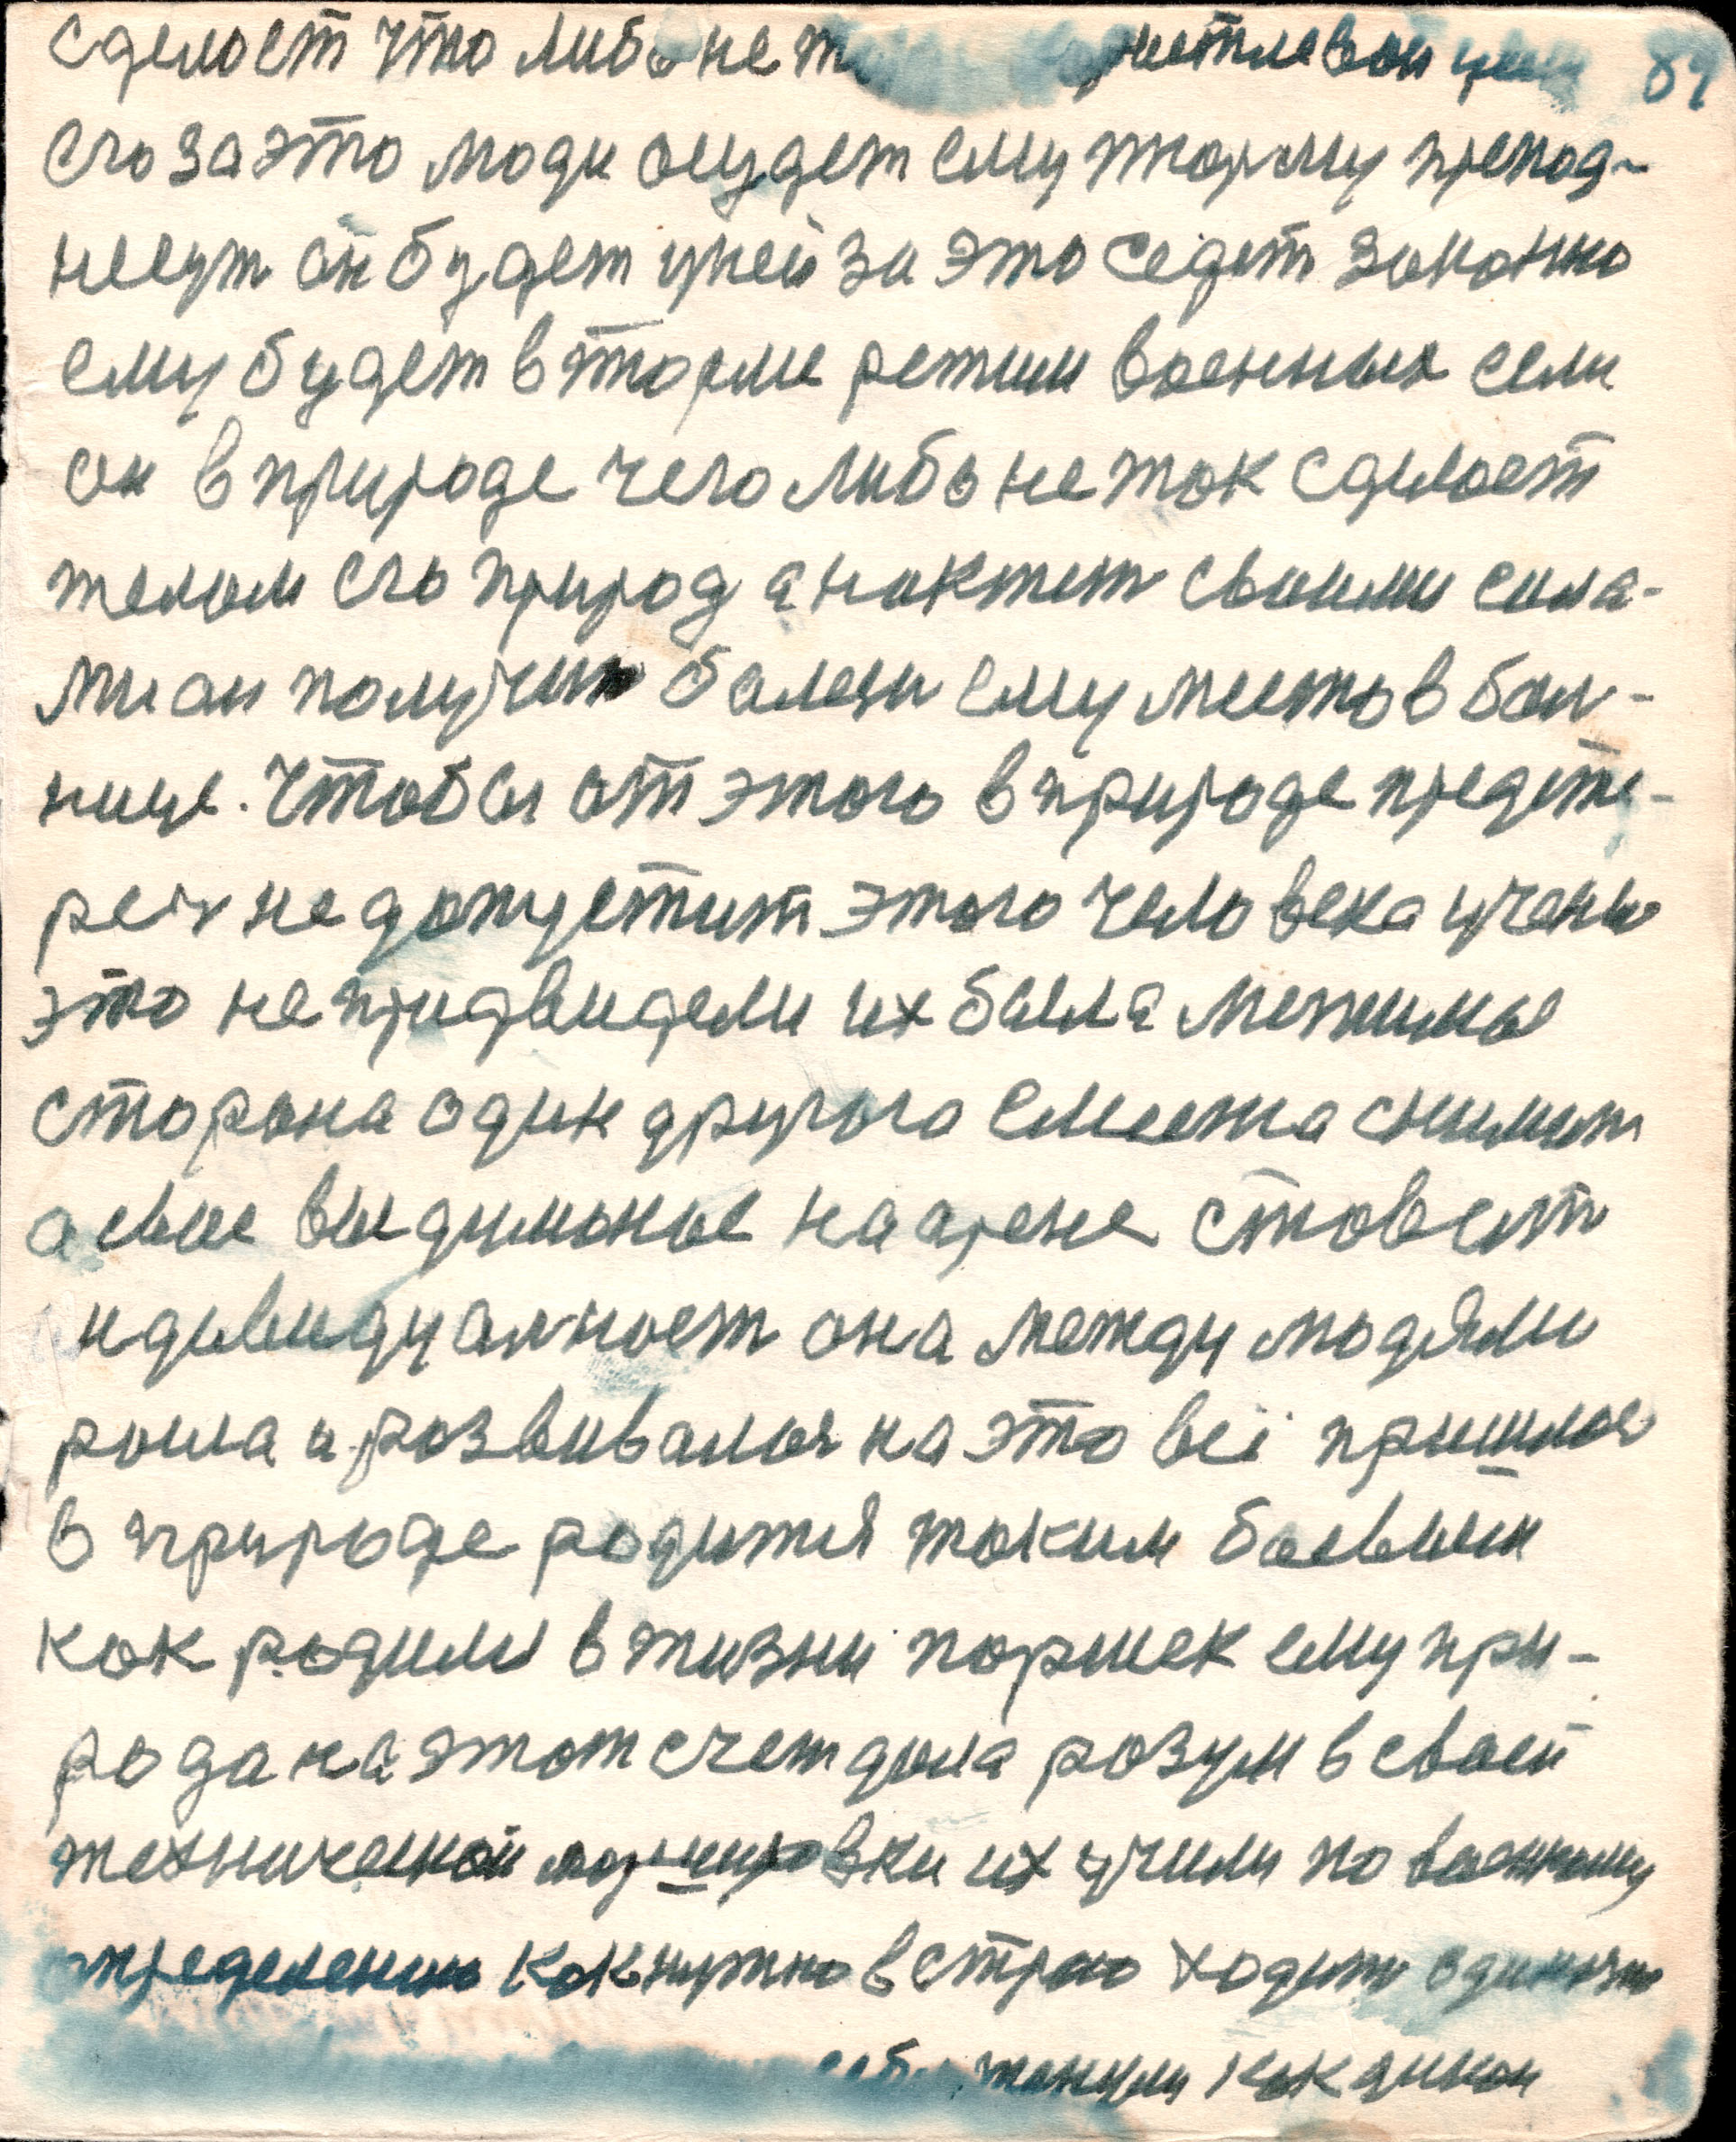 сделоет что либо не 89
его за это люди осудет ему тюрму препод-
несут он будет уней за это седет законно
ему будет в тюрме режим военных если
он в природе чего либо не ток сделоет
телом его природа накжет своими сила-
ми он получит балезн ему место в бол-
нице. Чтобы от этого в природе предсте-
реч не допустит этого человека учены
это не придвидели их была мнимые
сторона один другого с места снимит
а свое выдимоные на арене ставет
идивидуалност она между людями
росла и розвивалася на это всё пришлос
в природе родится таким боевым
кок родилс в жизни поршек ему при-
рода на этот счет дала розум в своей
технической их учили по военному
определению кок нужно в строю ходит
тянули кок дикои